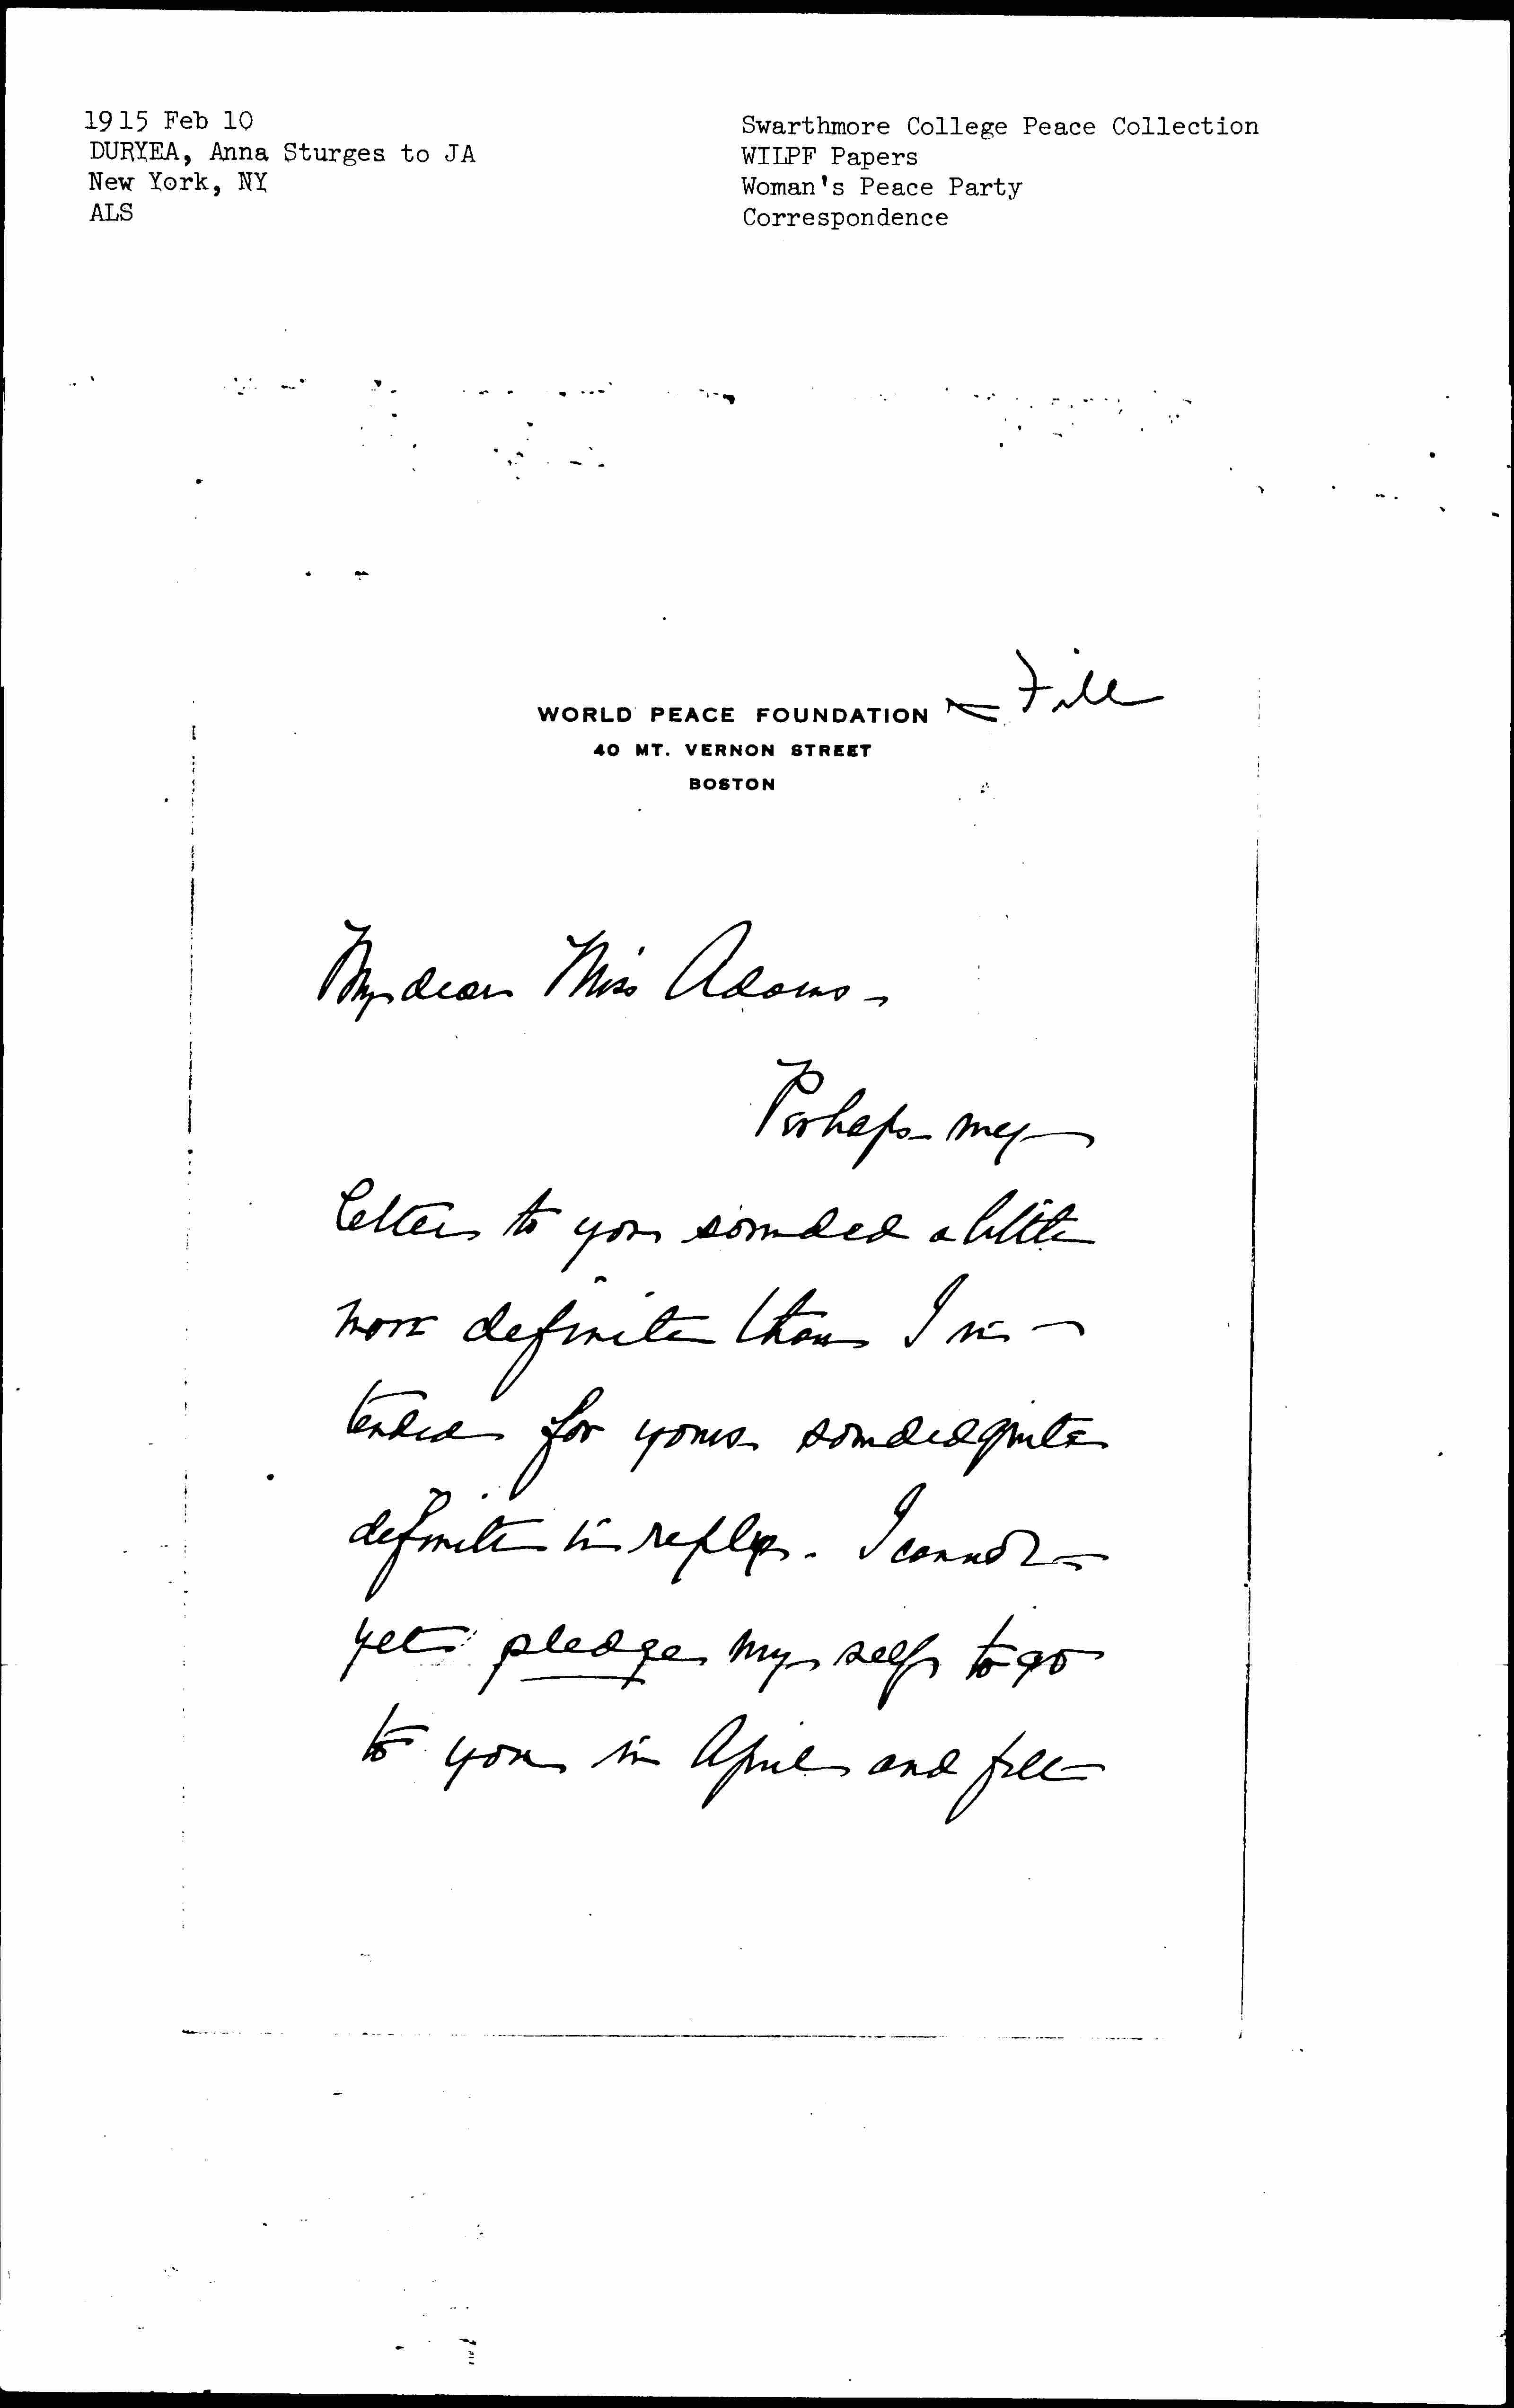 1915 Feb 10
DURYEA, Anna Sturges to JA
New York, NY
ALS
Swarthmore College Peace Collection
WILPF Papers
Woman's Peace Party
Correspondence
File
WORLD PEACE FOUNDATION
40 MT. VERNON STREET
BOSTON
My dear Miss Adams -
Perhaps my
letter to you sounded a little
more definite than I in-
tended for yours sounded quite
definite in reply. I cannot
yet pledge my self to go
to you in April and fill